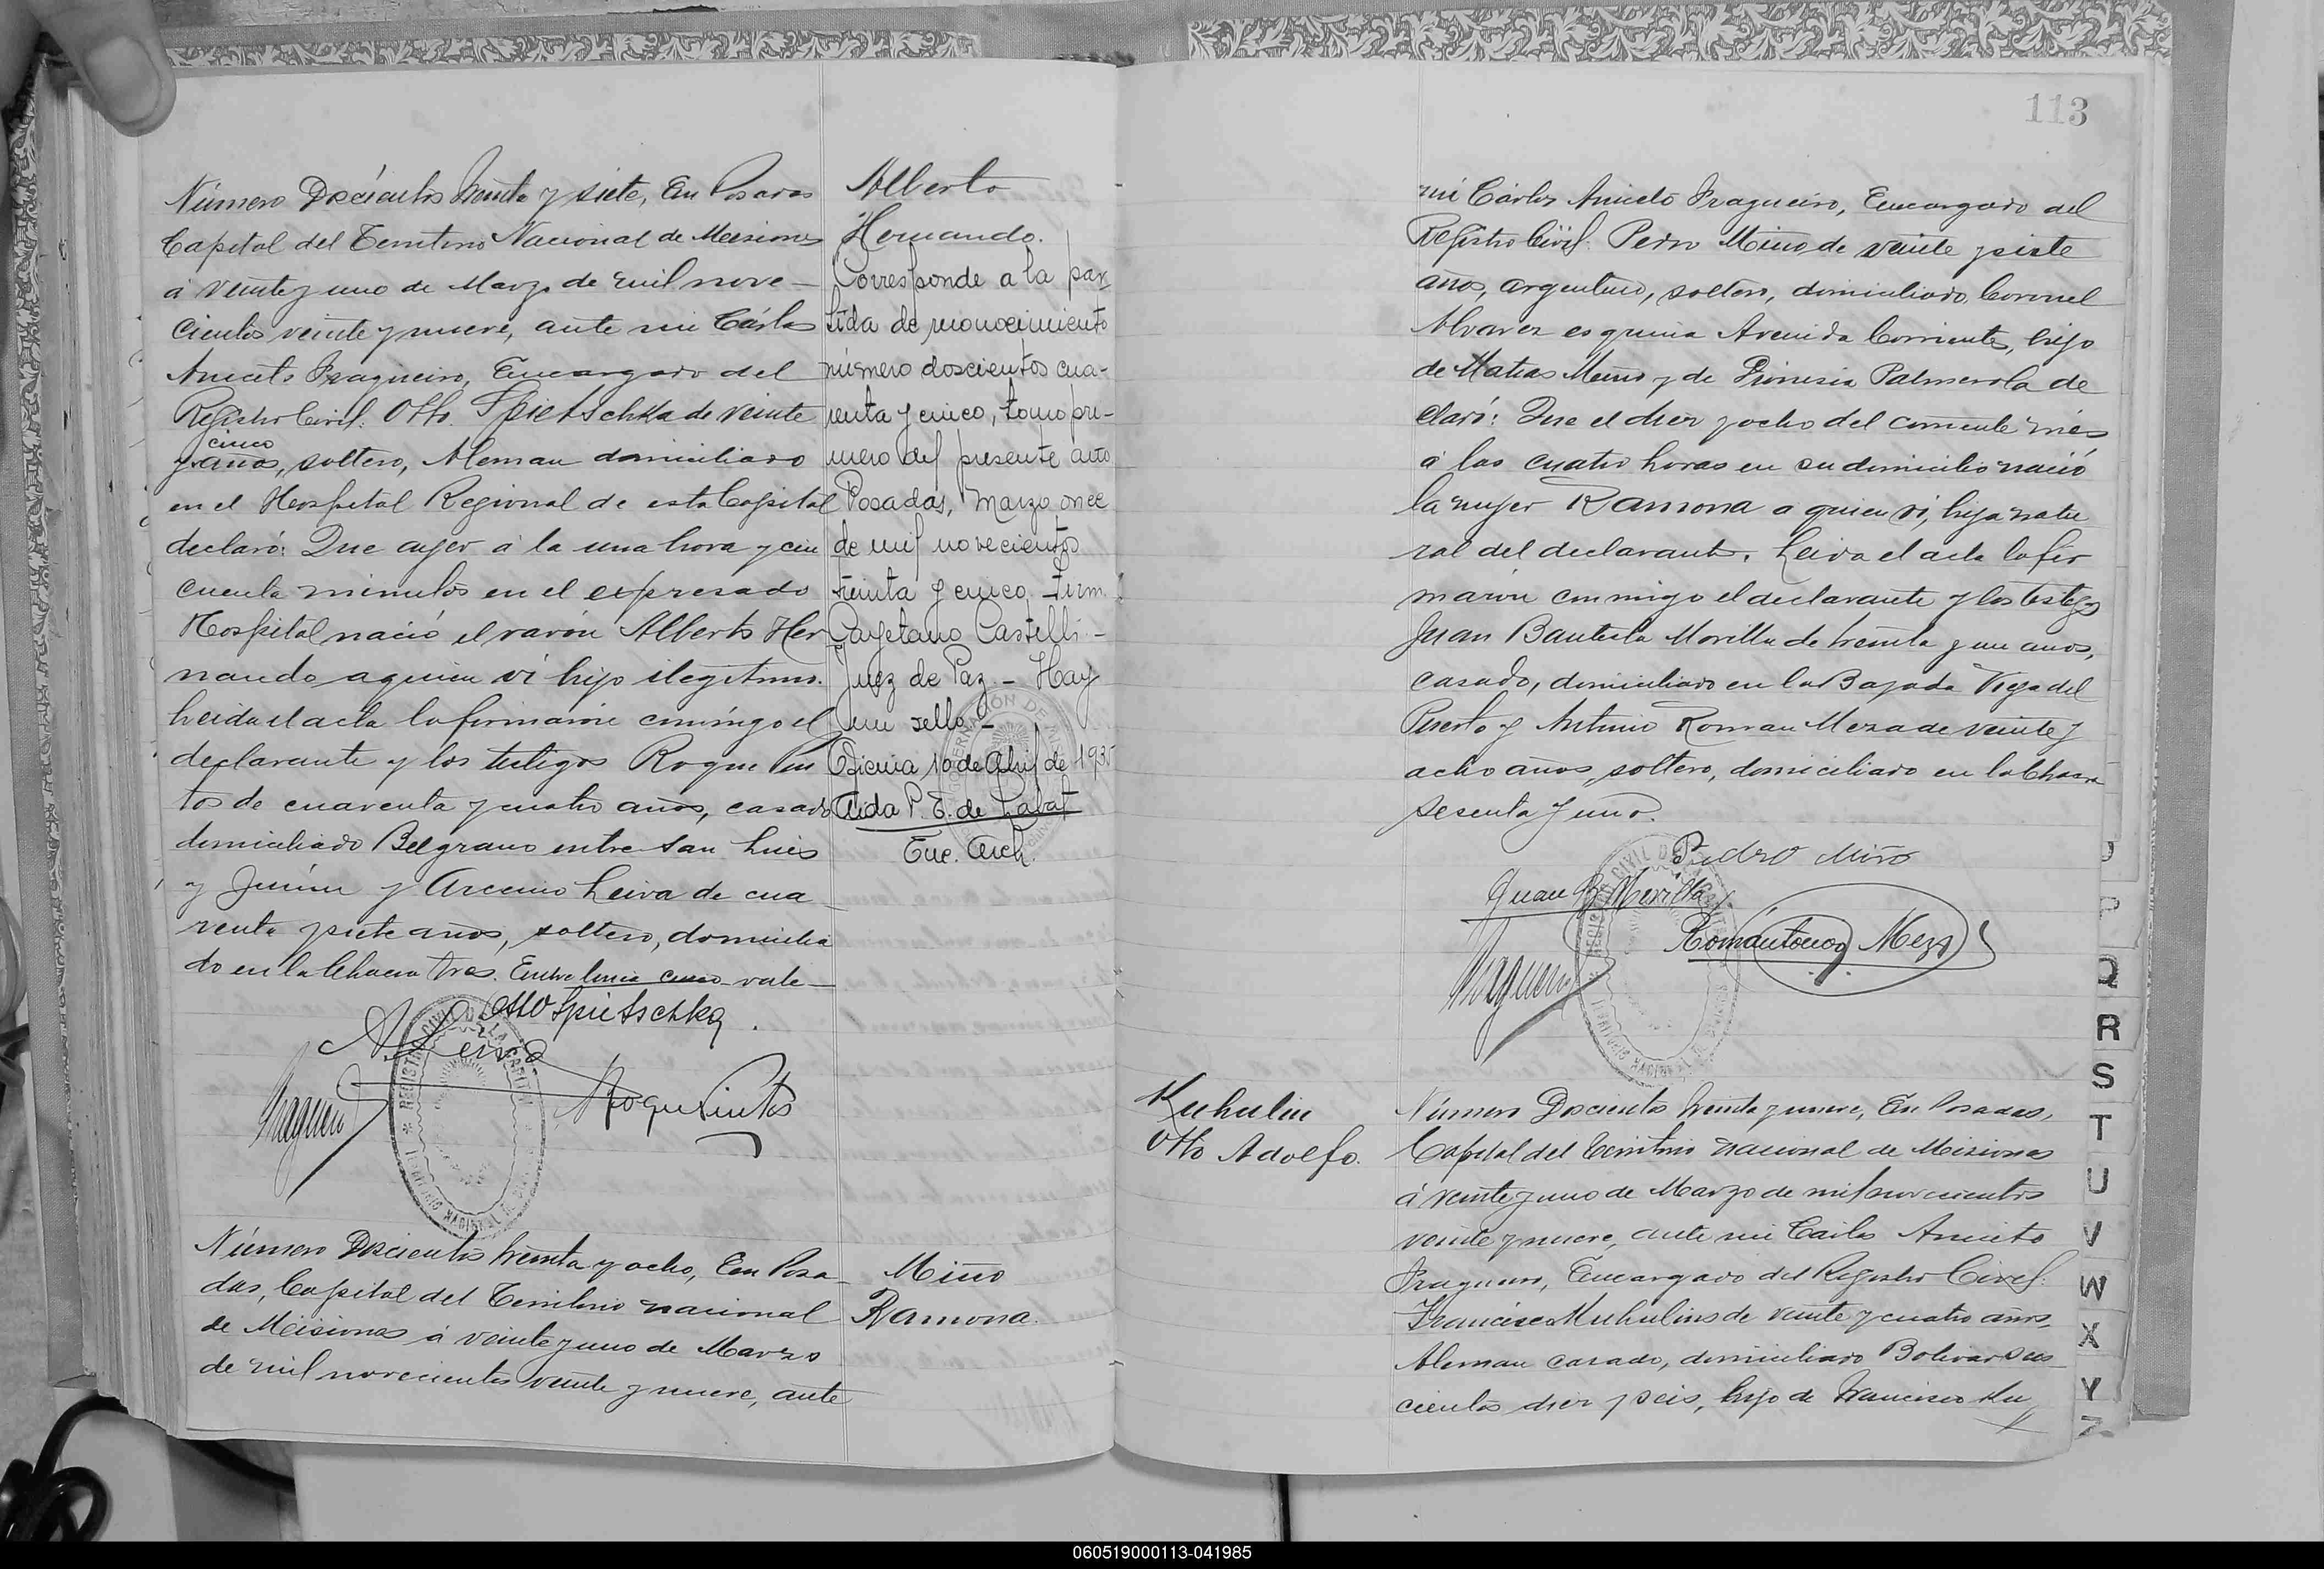 Número Doscientos treinta y siete, En Posadas
Capital del Territorio Nacional de Misiones
á veinte y uno de Marzo de mil nove-
cientos veinte y nueve, ante mi Cárlos
Aniceto Fragueiro, Encargado del
Registro Civil: Otto Spietschka de veinte
cinco
y años, soltero, Aleman domiciliado
en el Hospital Regional de esta Capital
declaró: Que ayer á la una hora y cin
cuenta minutos en el expresado
Hospital nació el varón Alberto Her
nando a quien ví hijo ilegítimo.
Leida el acta la firmaron conmigo el
declarante y los testigos Roque Pin
tos de cuarenta y cuatro años, casado
domiciliado Belgrano entre San Luis
y Junín y Arcenio Leiva de cua
renta y siete años, soltero, domicilia
do en la Chacra tres. Entre linea cinco vale
Otto Spietschka.
A. Leiva
Fragueiro
Roque Pintos
Alberto
Hernando.
Corresponde a la par
tida de reconocimiento
número doscientos cua-
renta y cinco, tomo pri-
mero del presente año
Posadas, Marzo once
de mil novecientos
treinta y cinco. Firm.
Cayetano Castelli-
Juez de Paz - Hay
un sello -
Oficina 10 de Abril de 1935
Aida P. E. de Labat
Enc. Arch.
Número Doscientos treinta y ocho, En Posa
das, Capital del Territorio nacional
de Misiones á veinte y uno de Marzo
de mil novecientos veinte y nueve, ante
Miño
Ramona.
113
mi Cárlos Aniceto Fragueiro, Encargado del
Registro Civil: Pedro Miño de veinte y siete
años, argentino, soltero, domiciliado Coronel
Alvarez esquina Avenida Corrientes, hijo
de Matias Miño y de Dionisia Palmerola de
claró: Que el diez y ocho del corriente més
á las cuatro horas en su domicilio nació
la mujer Ramona a quien ví, hija natu
ral del declarante. Leida el acta la fir
maron conmigo el declarante y los testigos
Juan Bautista Morilla de treinta y un anos,
casado, domiciliado en la Bajada Vieja del
Puerto y Antonio Roman Meza de veinte y
ocho años, soltero, domiciliado en la Chacra
sesenta y uno.
Pedro Miño
Juan B. Morilla
Roman Antonio Meza
Fragueiro
Kuhulin
Otto Adolfo.
Número Doscientos treinta y nueve, En Posadas,
Capital del Territorio nacional de Misiones
á veinte y uno de Marzo de mil novecientos
veinte y nueve, ante mi Carlos Aniceto
Fragueiro, Encargado del Registro Civil:
Francisco Kuhulins de veinte y cuatro años,
Aleman casado, domiciliado Bolivar seis
cientos diez y seis, hijo de Francisco Ku
P
Q
R
S
T
U
V
W
X
Y
Z
060519000113-041985